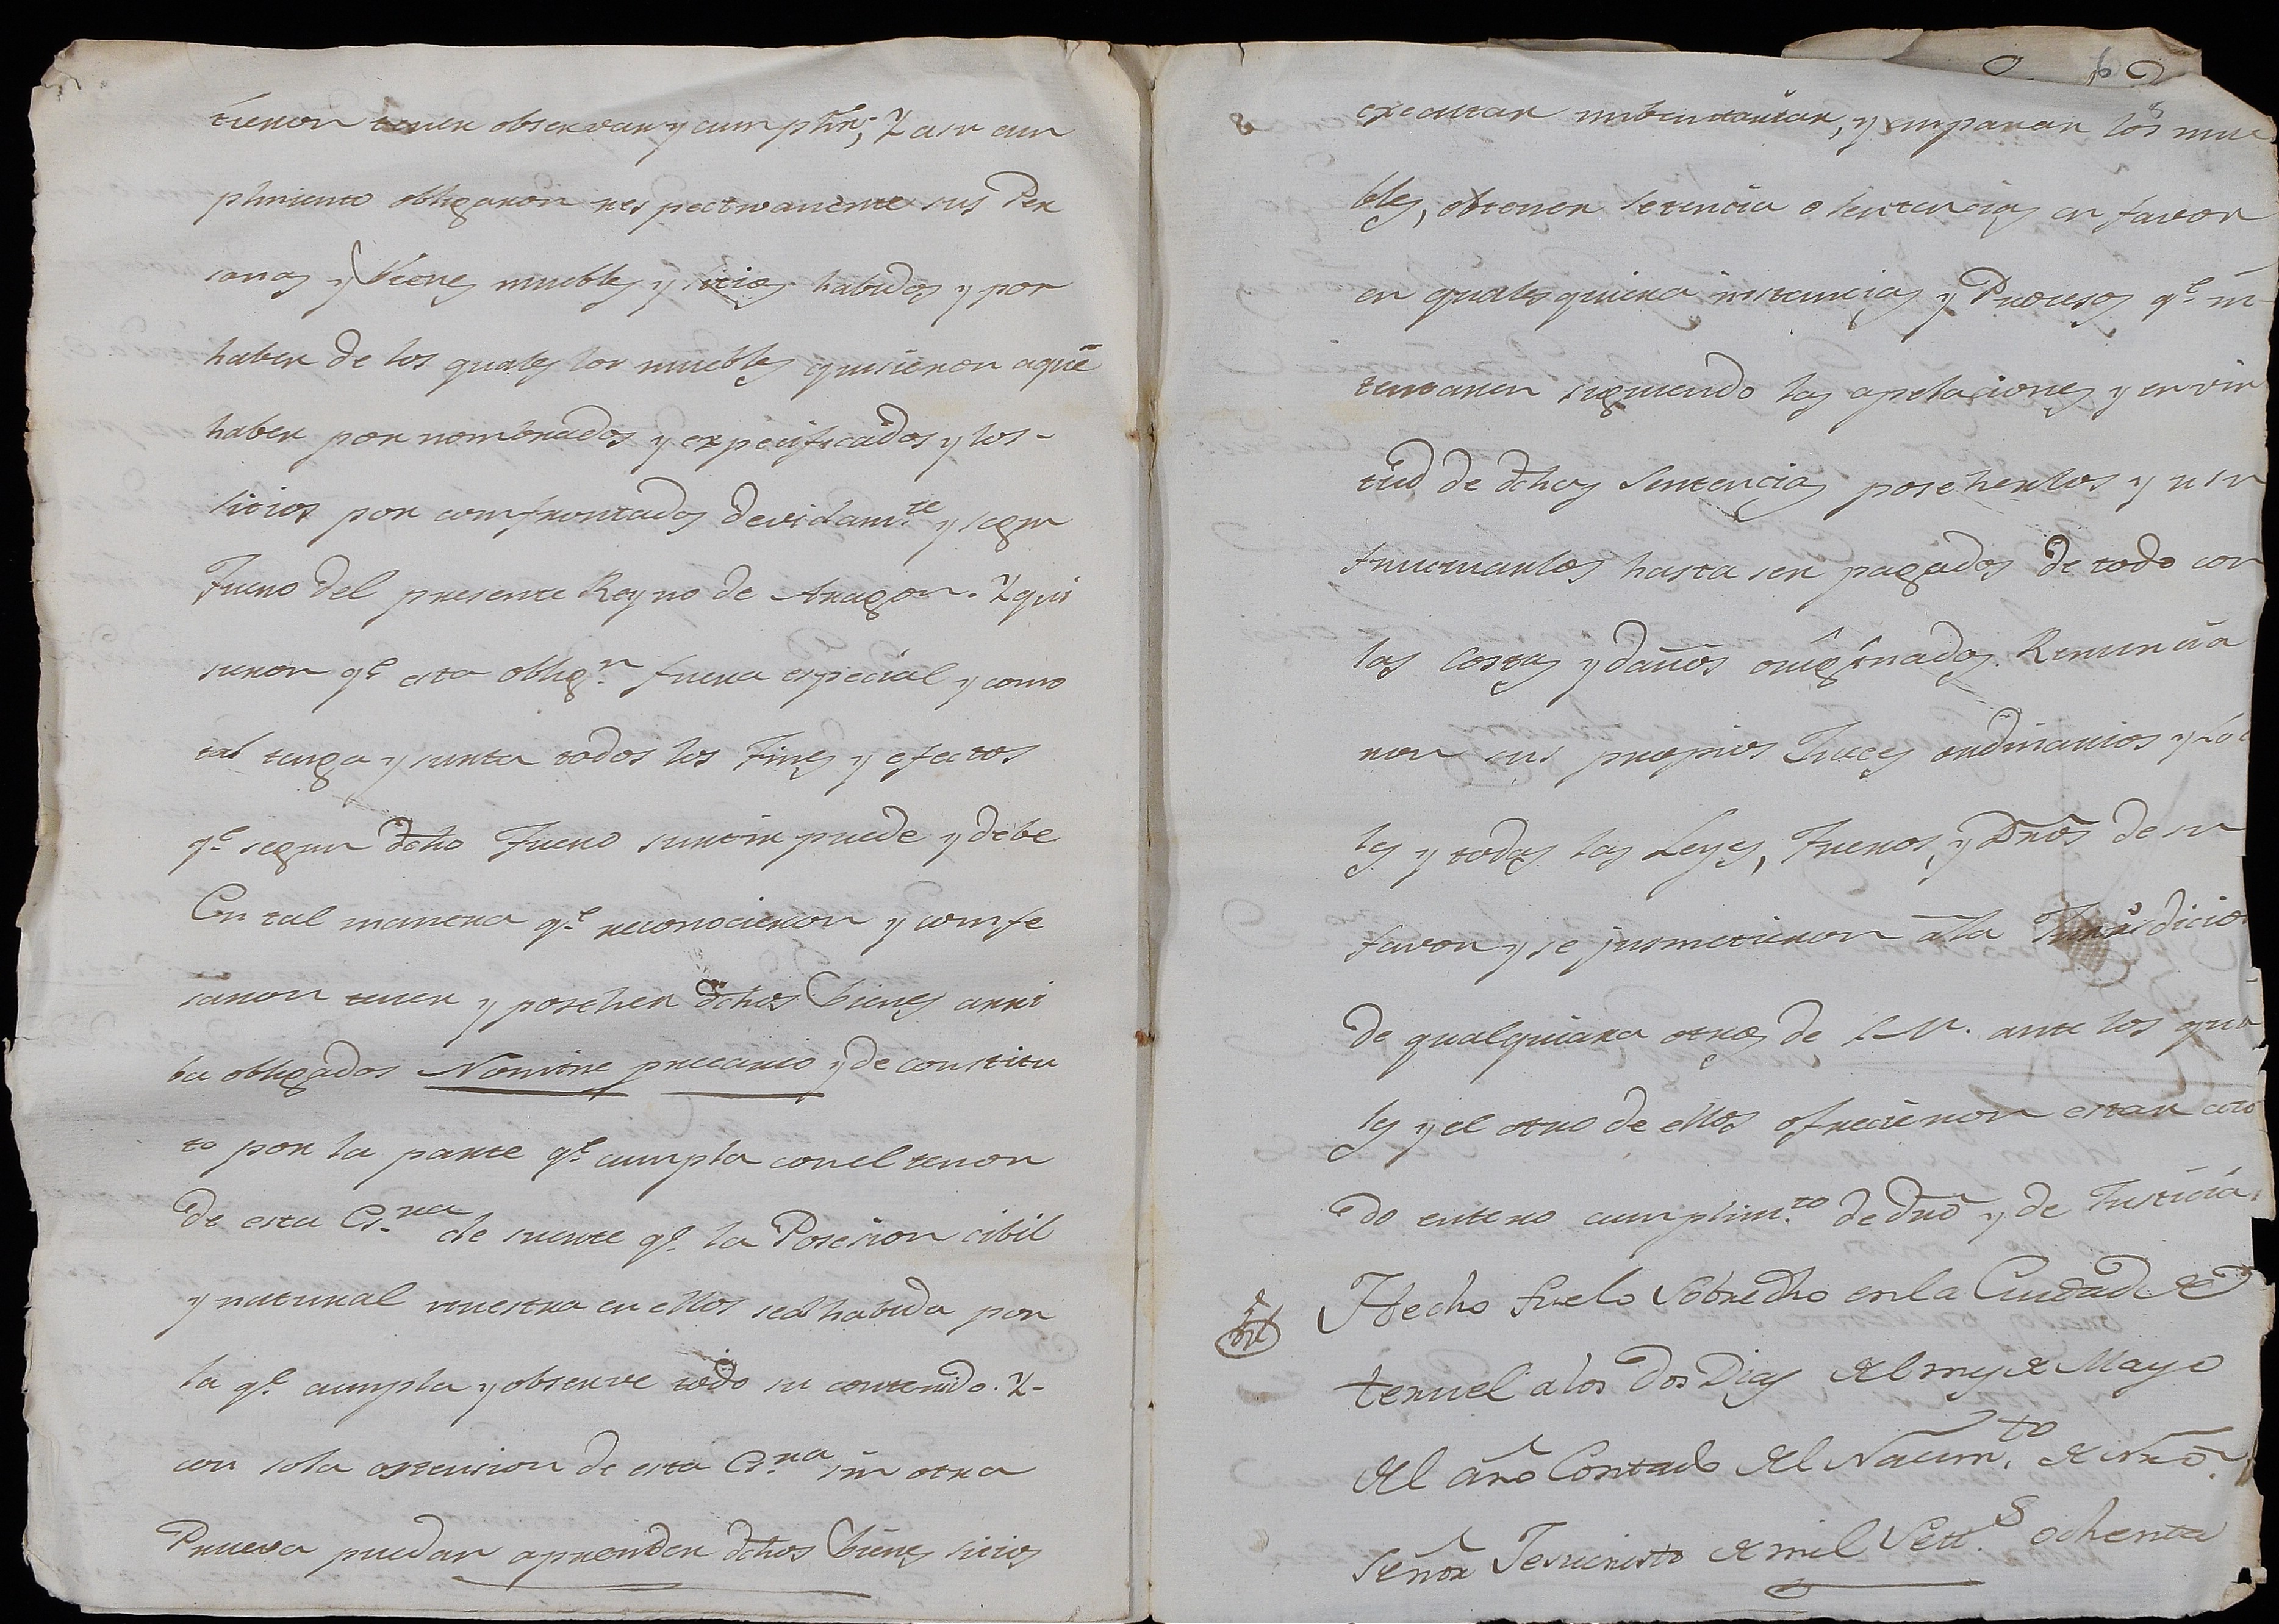 tieron tener observar y cumplir; Y a su cum
plimiento obligaron respectivamente sus Per
sonas y Vienes muebles y sitios habidos y por
haber de los quales los muebles quisieron aqui
haber por nombrados y expecificados y los-
sitios por comfrontados devidam.te y segun
Fuero del presente Reyno de Aragon. Y qui
sieron q.e esta oblig.n fuera especial y como
tal tenga y surta todos los Fines y efectos
q.e segun dcho Fuero surtir puede y debe
En tal manera q.e reconocieron y comfe
saron tener y poseher dchos bienes arri
ba obligados Nomine precario y de constitu
to por la parte q.e cumpla con el tenor
de esta Es.ra de suerte q.e la Posesion cibil
y natural nuestra en ellos sea habida por
la q.e cumpla y observe todo su contenido. Y-
con sola ostension de esta Es.ra sin otra
Prueva puedan aprender dchos bienes sitios
executar imbentariar, y emparar los mue
bles, obtener setencia o sentencias en favor
en qualesquiera instancias y Procesos q.e in-
tentaren siguiendo las apelaciones y en vir
tud de dchas Sentencias poseherlos y usu
fructuarlos hasta ser pagados de todo con
las Costas y daños originados. Renuncia
ron sus propios Jueces ordinarios y Loca
les y todas las Leyes, Fueros, y Dros de su
favor y se jusmetieron á la Jurisdicion
de qualquiera otros de S.M. ante los qua
les y el otro de ellos ofrecieron estar
do entero cumplim.to de dro y de Justicia.
Hecho fue lo Sobredho en la Ciudad de
teruel a los Dos Dias del mes de Mayo
del año Contado del Nacim.to de nro.
Señor Jesucristo de mil Sett.s ochenta